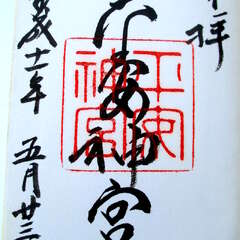 奉拝
平安神宮
平安
神宮
成十一年 五月廿三